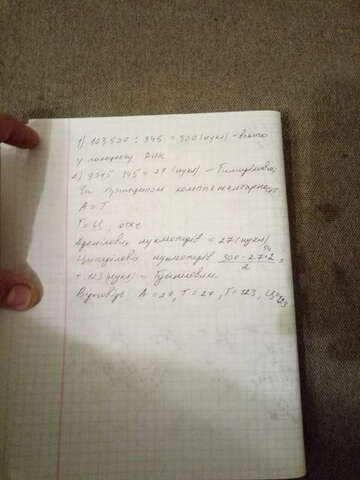 1) 103500 : 345 = 300 (нукл) - всього
у молекулі ДНК
2) 9315 : 345 = 27 (нукл) - Тимідилових
За принципом комплементарності
А = Т
Г = Ц, отже
Аденілових нуклеотидів = 27 (нукл)
Цитидилових нуклеотидів 300 - 27·2 / 2 =
= 123 (нукл) = Гуанілових
Відповідь: А = 27, Т = 27, Г = 123, Ц = 123